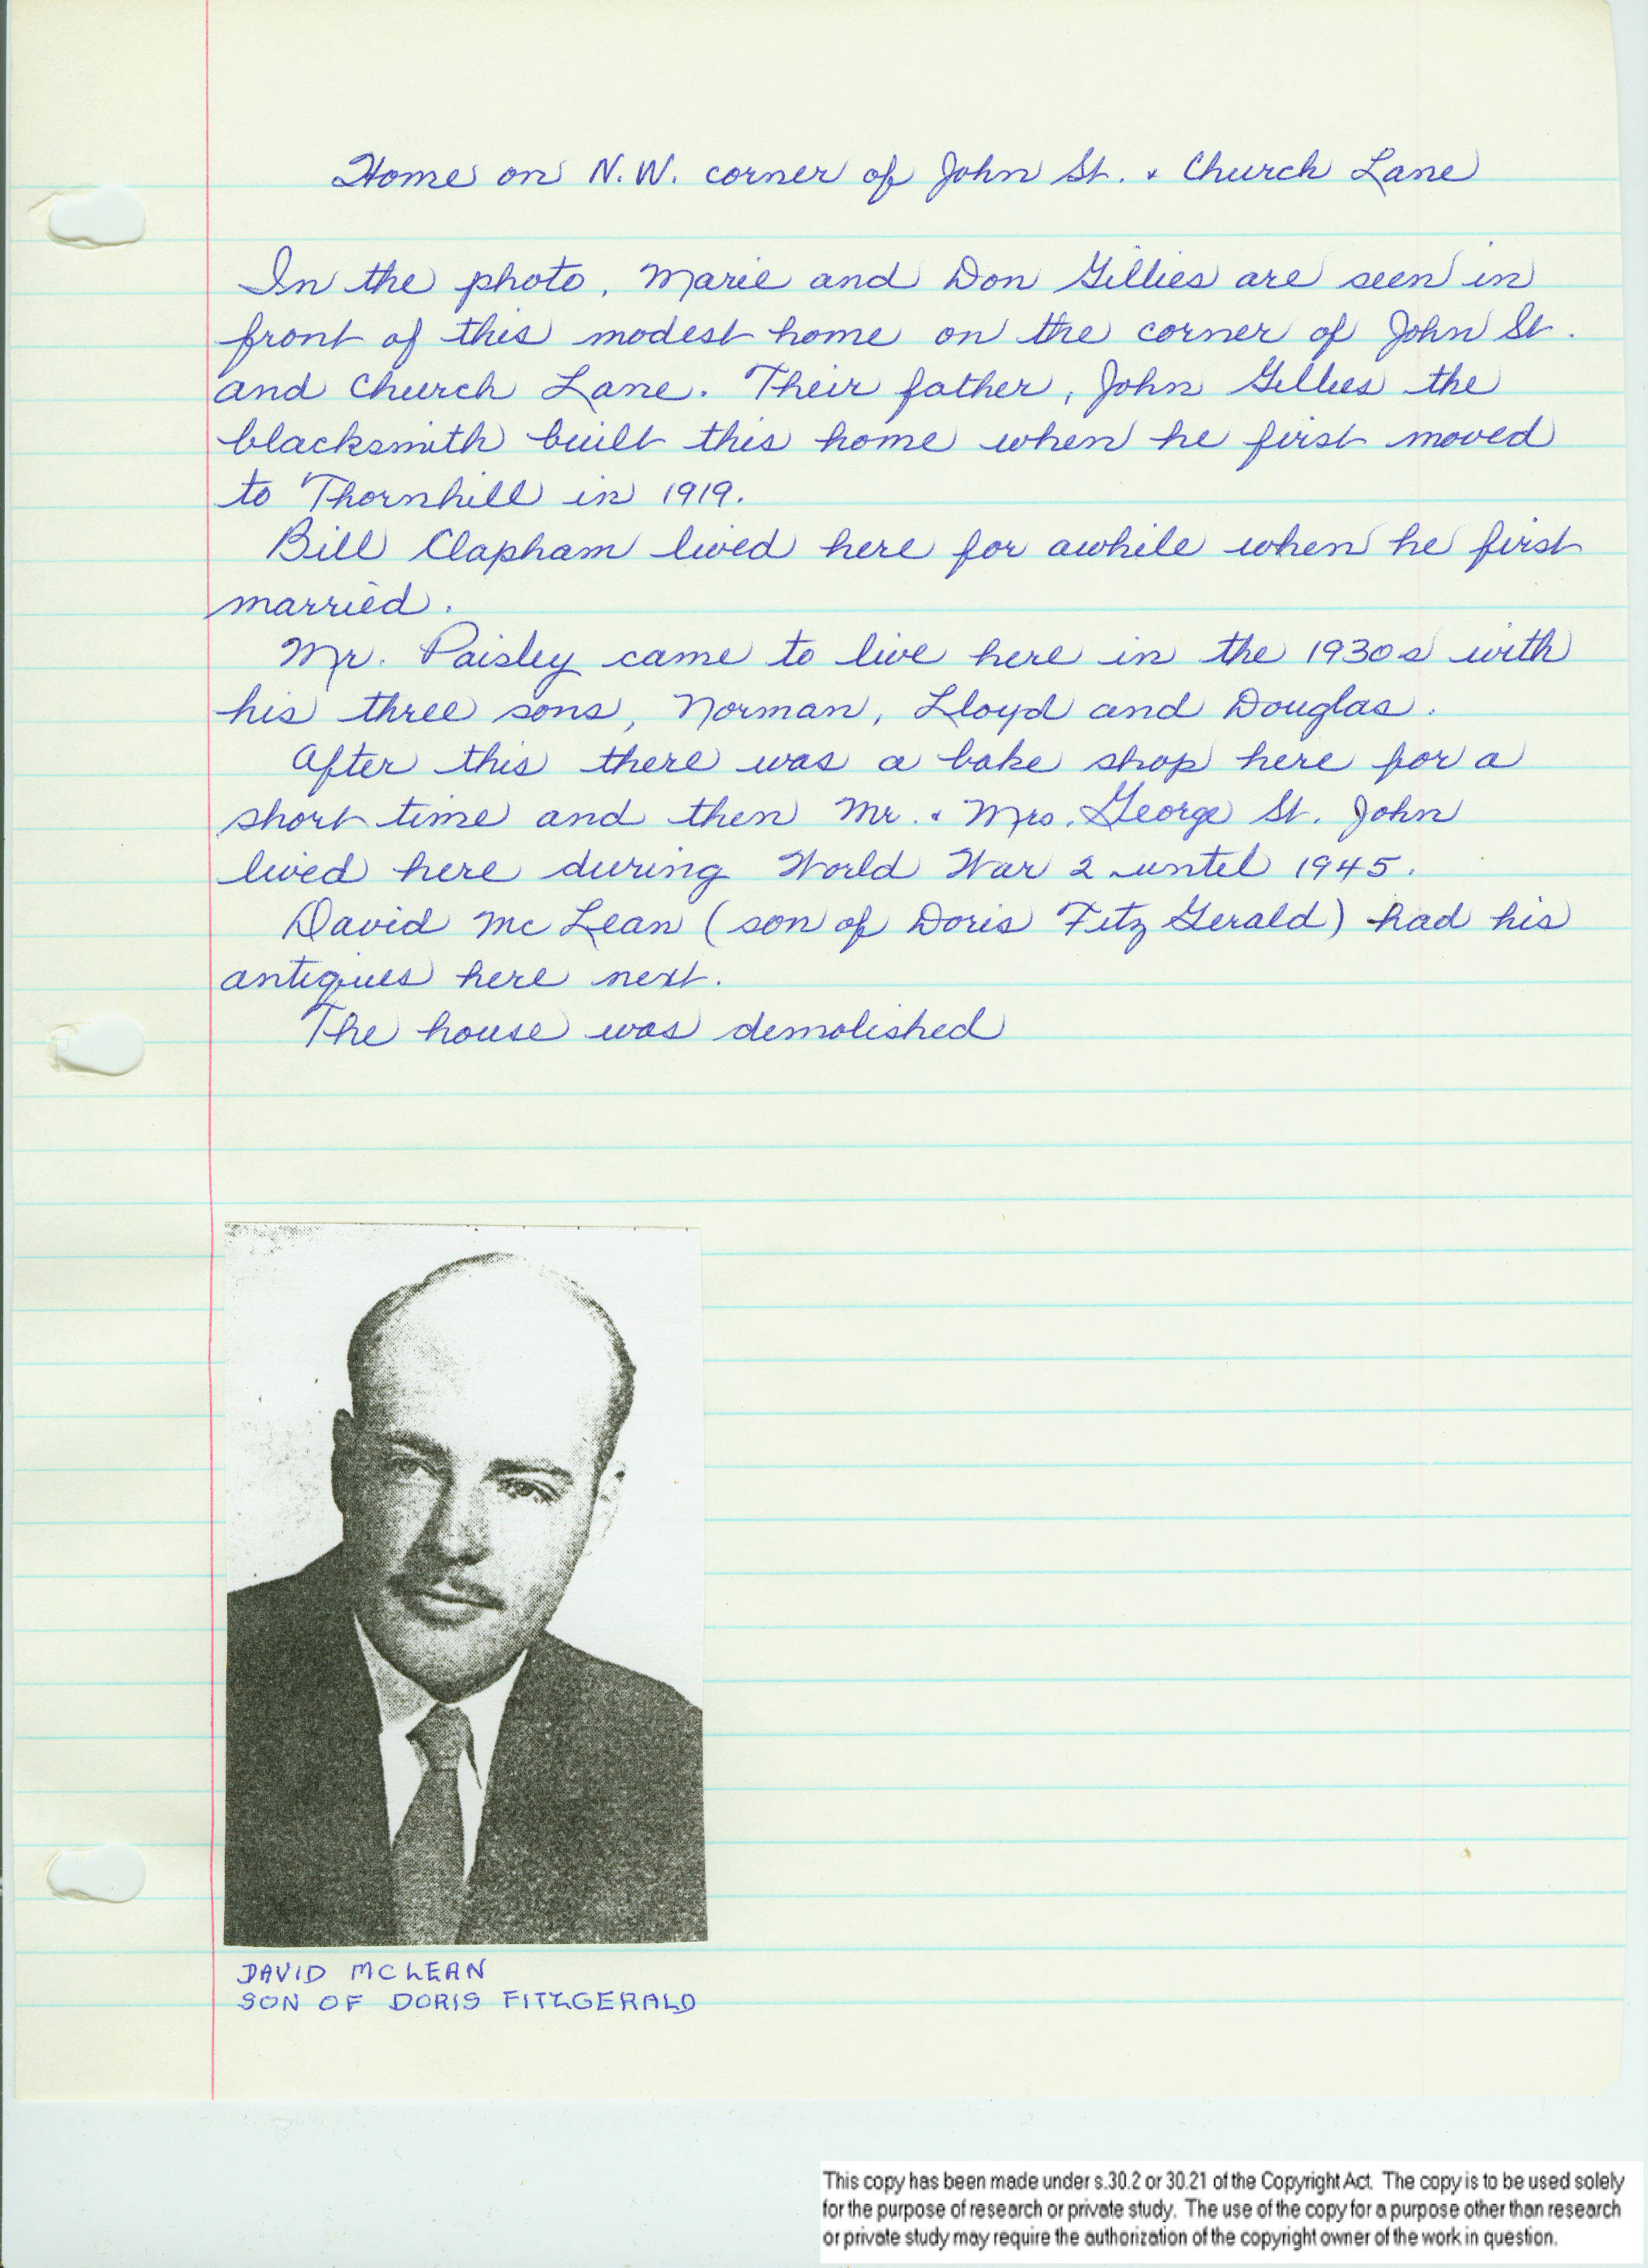 Home on N.W. corner of John St. & Church Lane
In the photo, Marie and Don Gillies are seen in
front of this modest home on the corner of John St.
and Church Lane. Their father, John Gillies the
blacksmith built this home when he first moved
to Thornhill in 1919.
Bill Clapham lived here for awhile when he first
married.
Mr. Paisley came to live here in the 1930s with
his three sons, Norman, Lloyd and Douglas.
After this there was a bake shop here for a
short time and then Mr. & Mrs. George St. John
lived here during World War 2 until 1945.
David McLean (son of Doris FitzGerald) had his
antiques here next.
The house was demolished
DAVID MCLEAN
SON OF DORIS FITZGERALD
This copy has been made under s.30.2 or 30.21 of the Copyright Act. The copy is to be used solely
for the purpose of research or private study. The use of the copy for a purpose other than research
or private study may require the authorization of the copyright owner of the work in question.